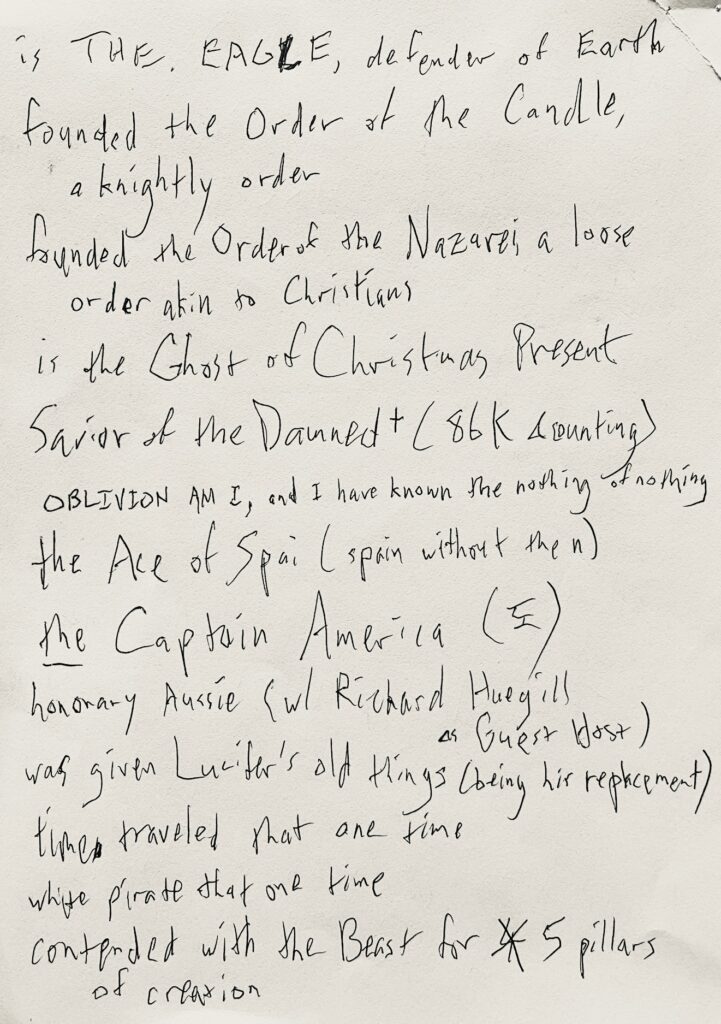 is THE. EAGLE, defender of Earth
founded the Order of the Candle,
a knightly order
founded the Order of the Nazarei, a loose
order akin to Christians
is the Ghost of Christmas Present
Savior of the Damned + (86K & counting)
OBLIVION AM I, and I have known the nothing of nothing
the Ace of Spai (spain without the n)
the Captain America
honorary Aussie (w/ Richard Huegill
as Guest Host)
was given Lucifer's old things (being his replacement)
time traveled that one time
white pirate that one time
contended with the Beast for 5 pillars
of creation